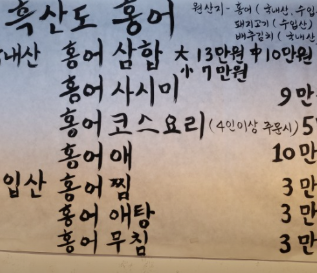 흑산도 홍어
원산지 - 홍어 (국내산, 수입
돼지고기 (수입산)
배추김치 (국내산
내산 홍어 삼합 大 13만원 中 10만원
小 7만원
홍어 사시미 9만
홍어 코스요리 (4인이상 주문시) 5
홍어 애 10만
입산 홍어 찜 3만
홍어 애탕 3만
홍어 무침 3만